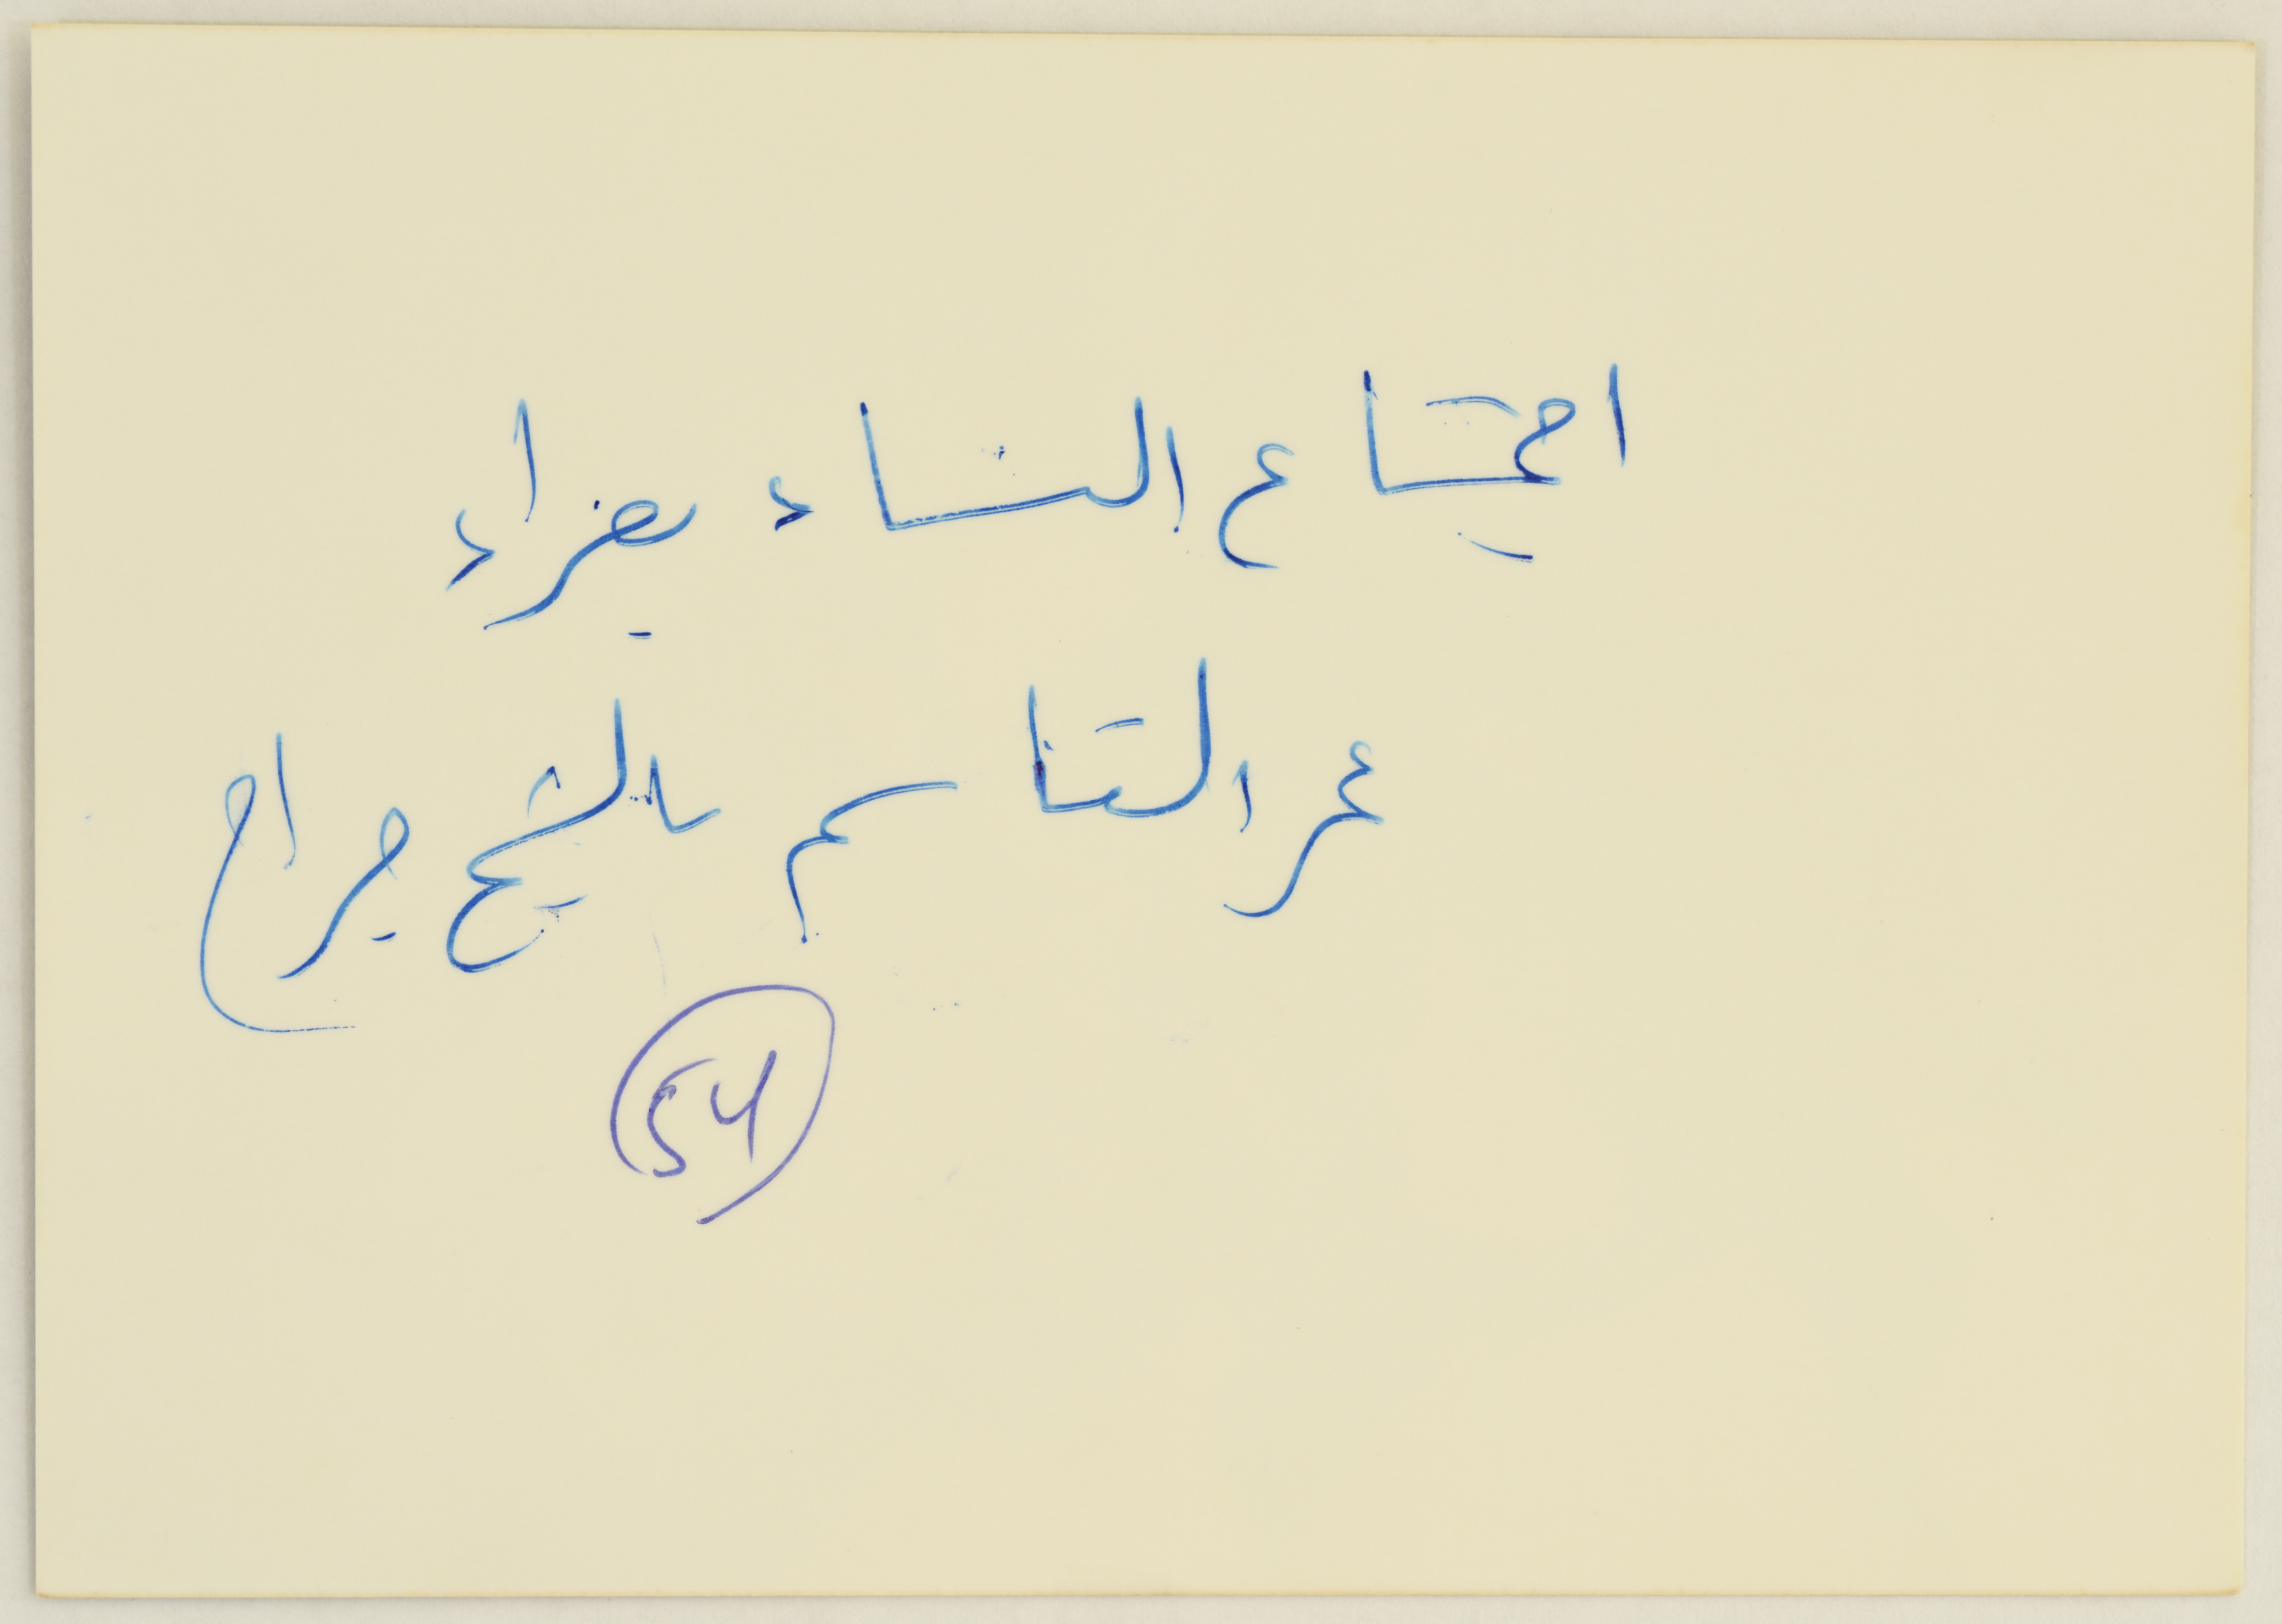 اجتماع النساء بعزاء
عمر القاسم بالشيخ جراح
54